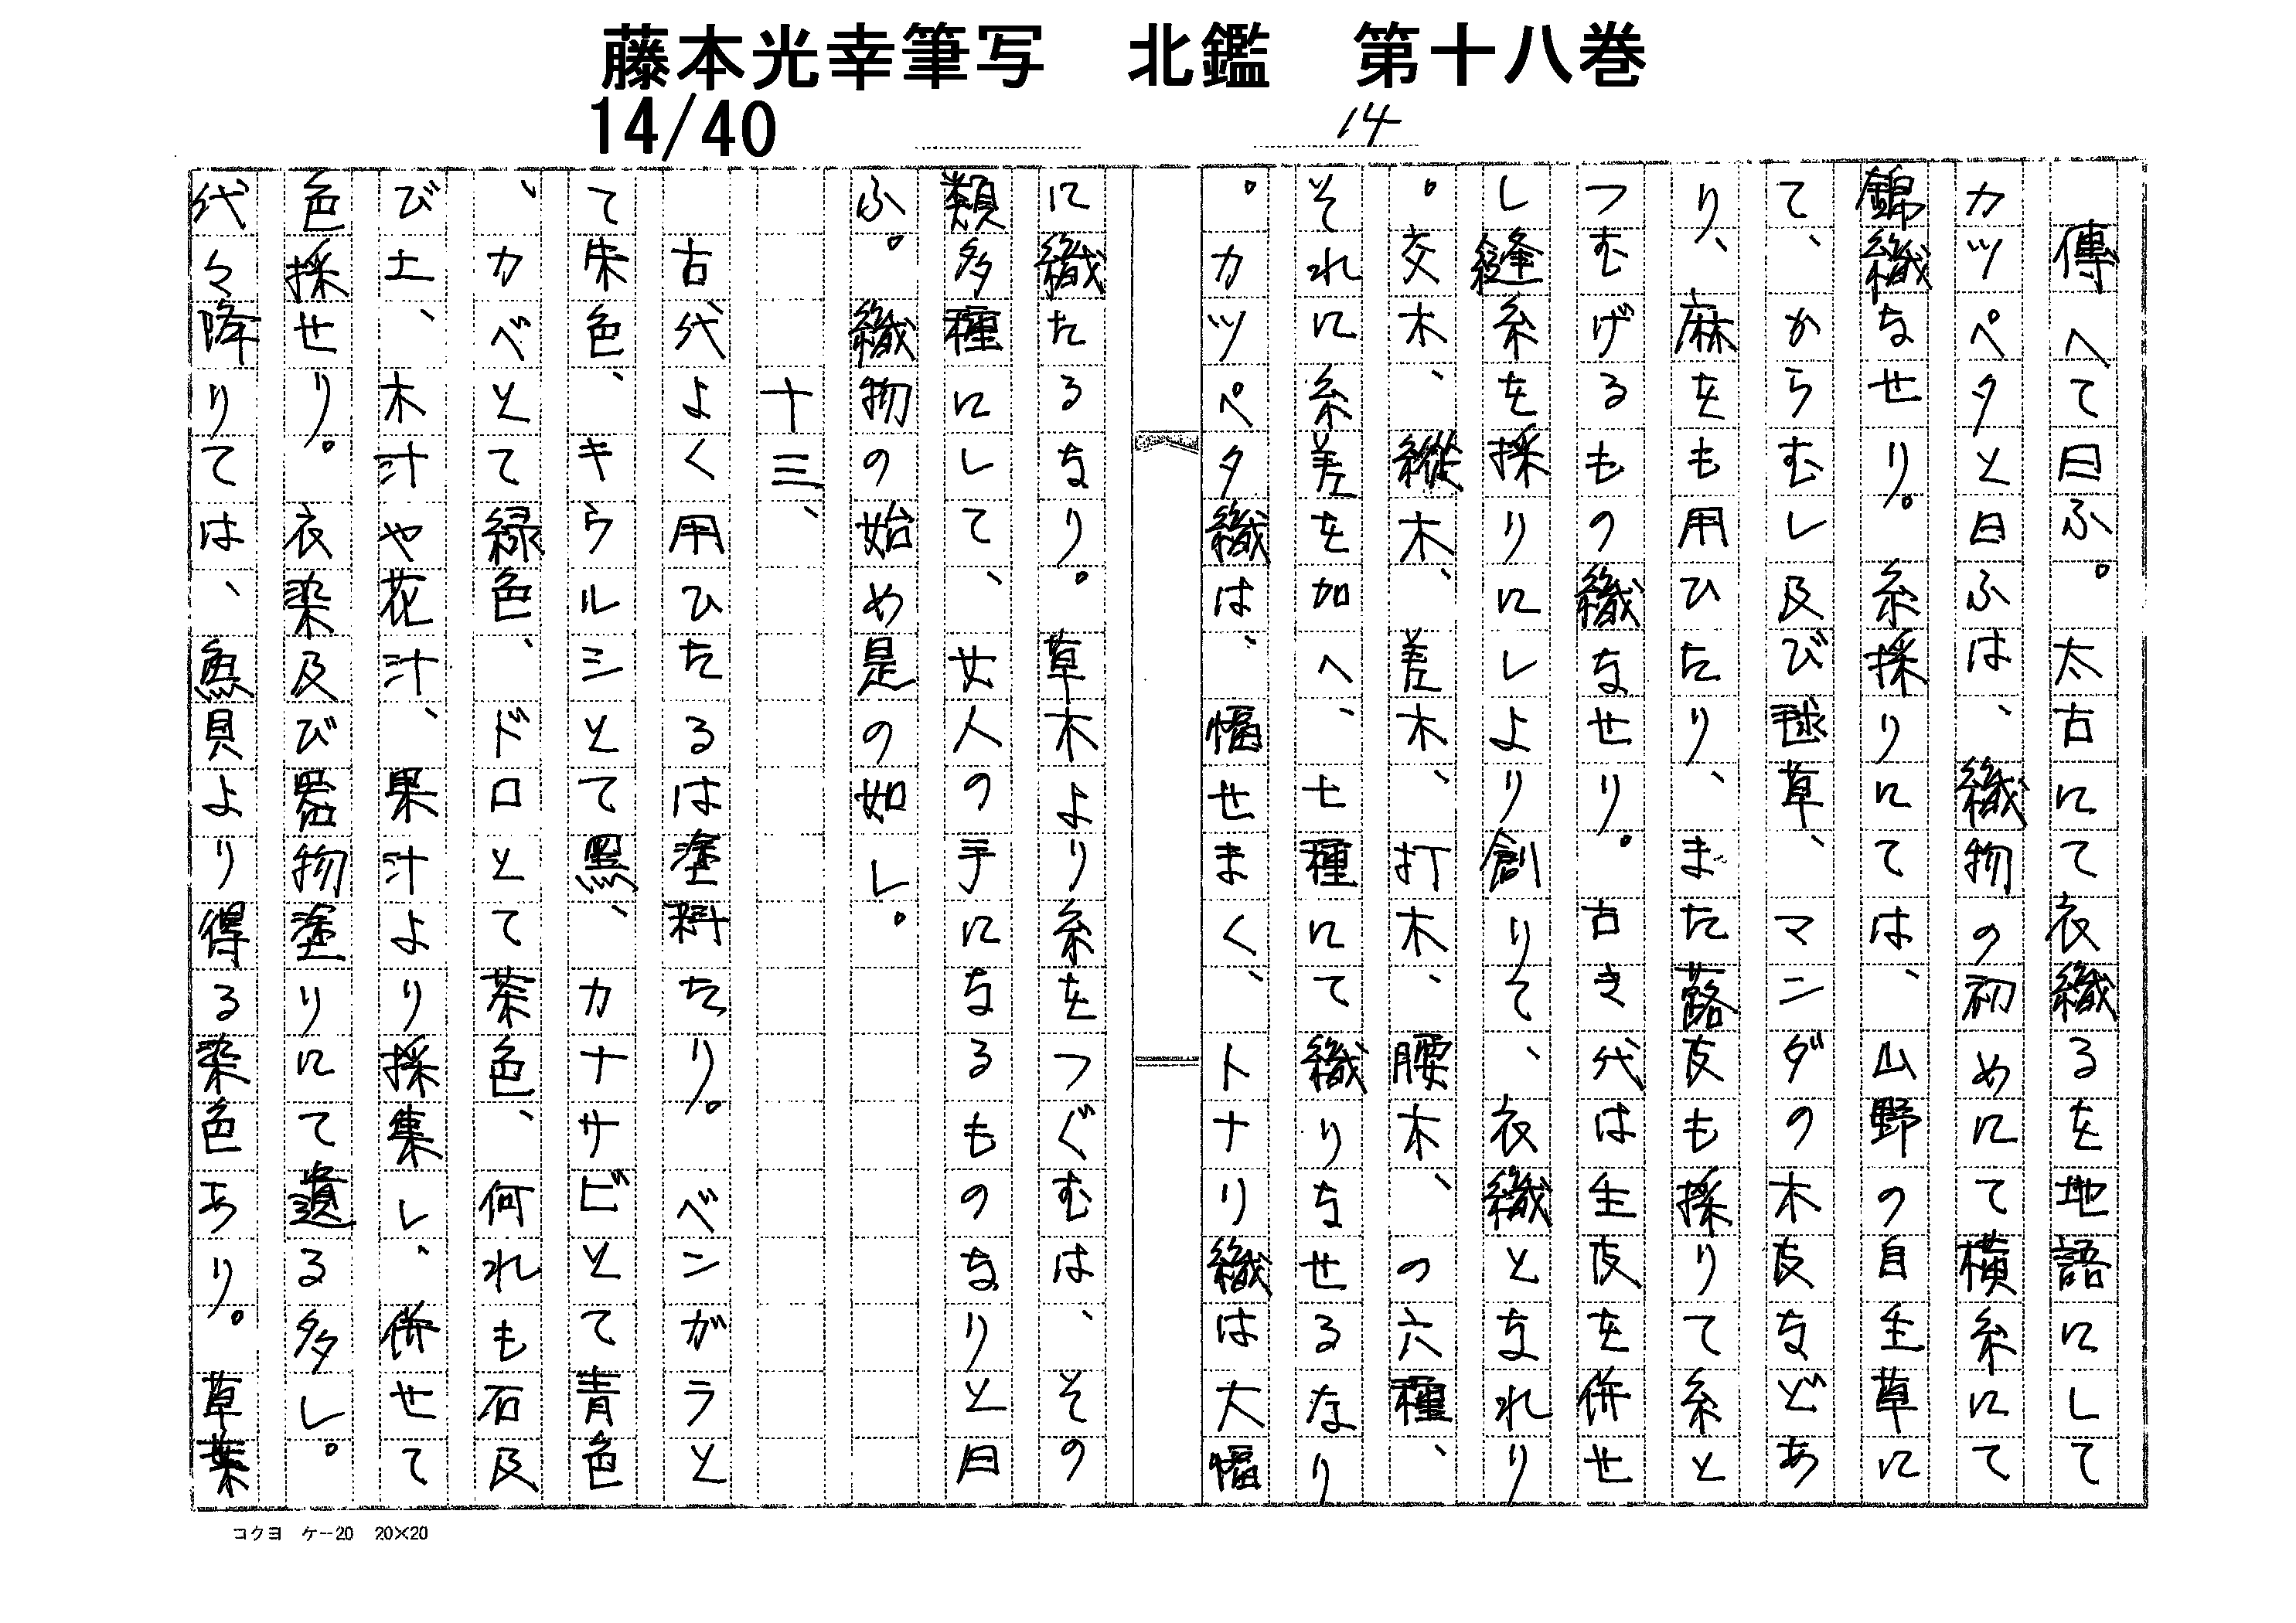 藤本光幸筆写　北鑑　第十八巻
14/40
14
傳へて曰ふ。太古にて衣織るを地語にして
カツペタと曰ふは、織物の初めにて横糸にて
錦織なせり。糸採りにては、山野の自生草に
て、からむし及び毬草、マンダの木皮などあ
り、麻をも用ひたり、また蕗皮も採りて糸と
つむげるもの織なせり。古き代は生皮を併せ
し縫糸を採りにしより創りて、衣織となれり
。交木、縦木、差木、打木、腰木、の六種、
それに糸差を加へ、七種にて織りなせるなり
。カツペタ織は、幅せまく、トナリ織は大幅
に織たるなり。草木より糸をつぐむは、その
類多種にして、女人の手になるものなりと曰
ふ。織物の始め是の如し。
十三、
古代よく用ひたるは塗料たり。ベンガラと
て朱色、キウルシとて黒、カナサビとて青色
、カベとて緑色、ドロとて茶色、何れも石及
び土、木汁や花汁、果汁より採集し、併せて
色採せり。衣染及び器物塗りにて遺る多し。
代々降りては、魚貝より得る染色あり。草葉
コクヨ　ケー20　20×20